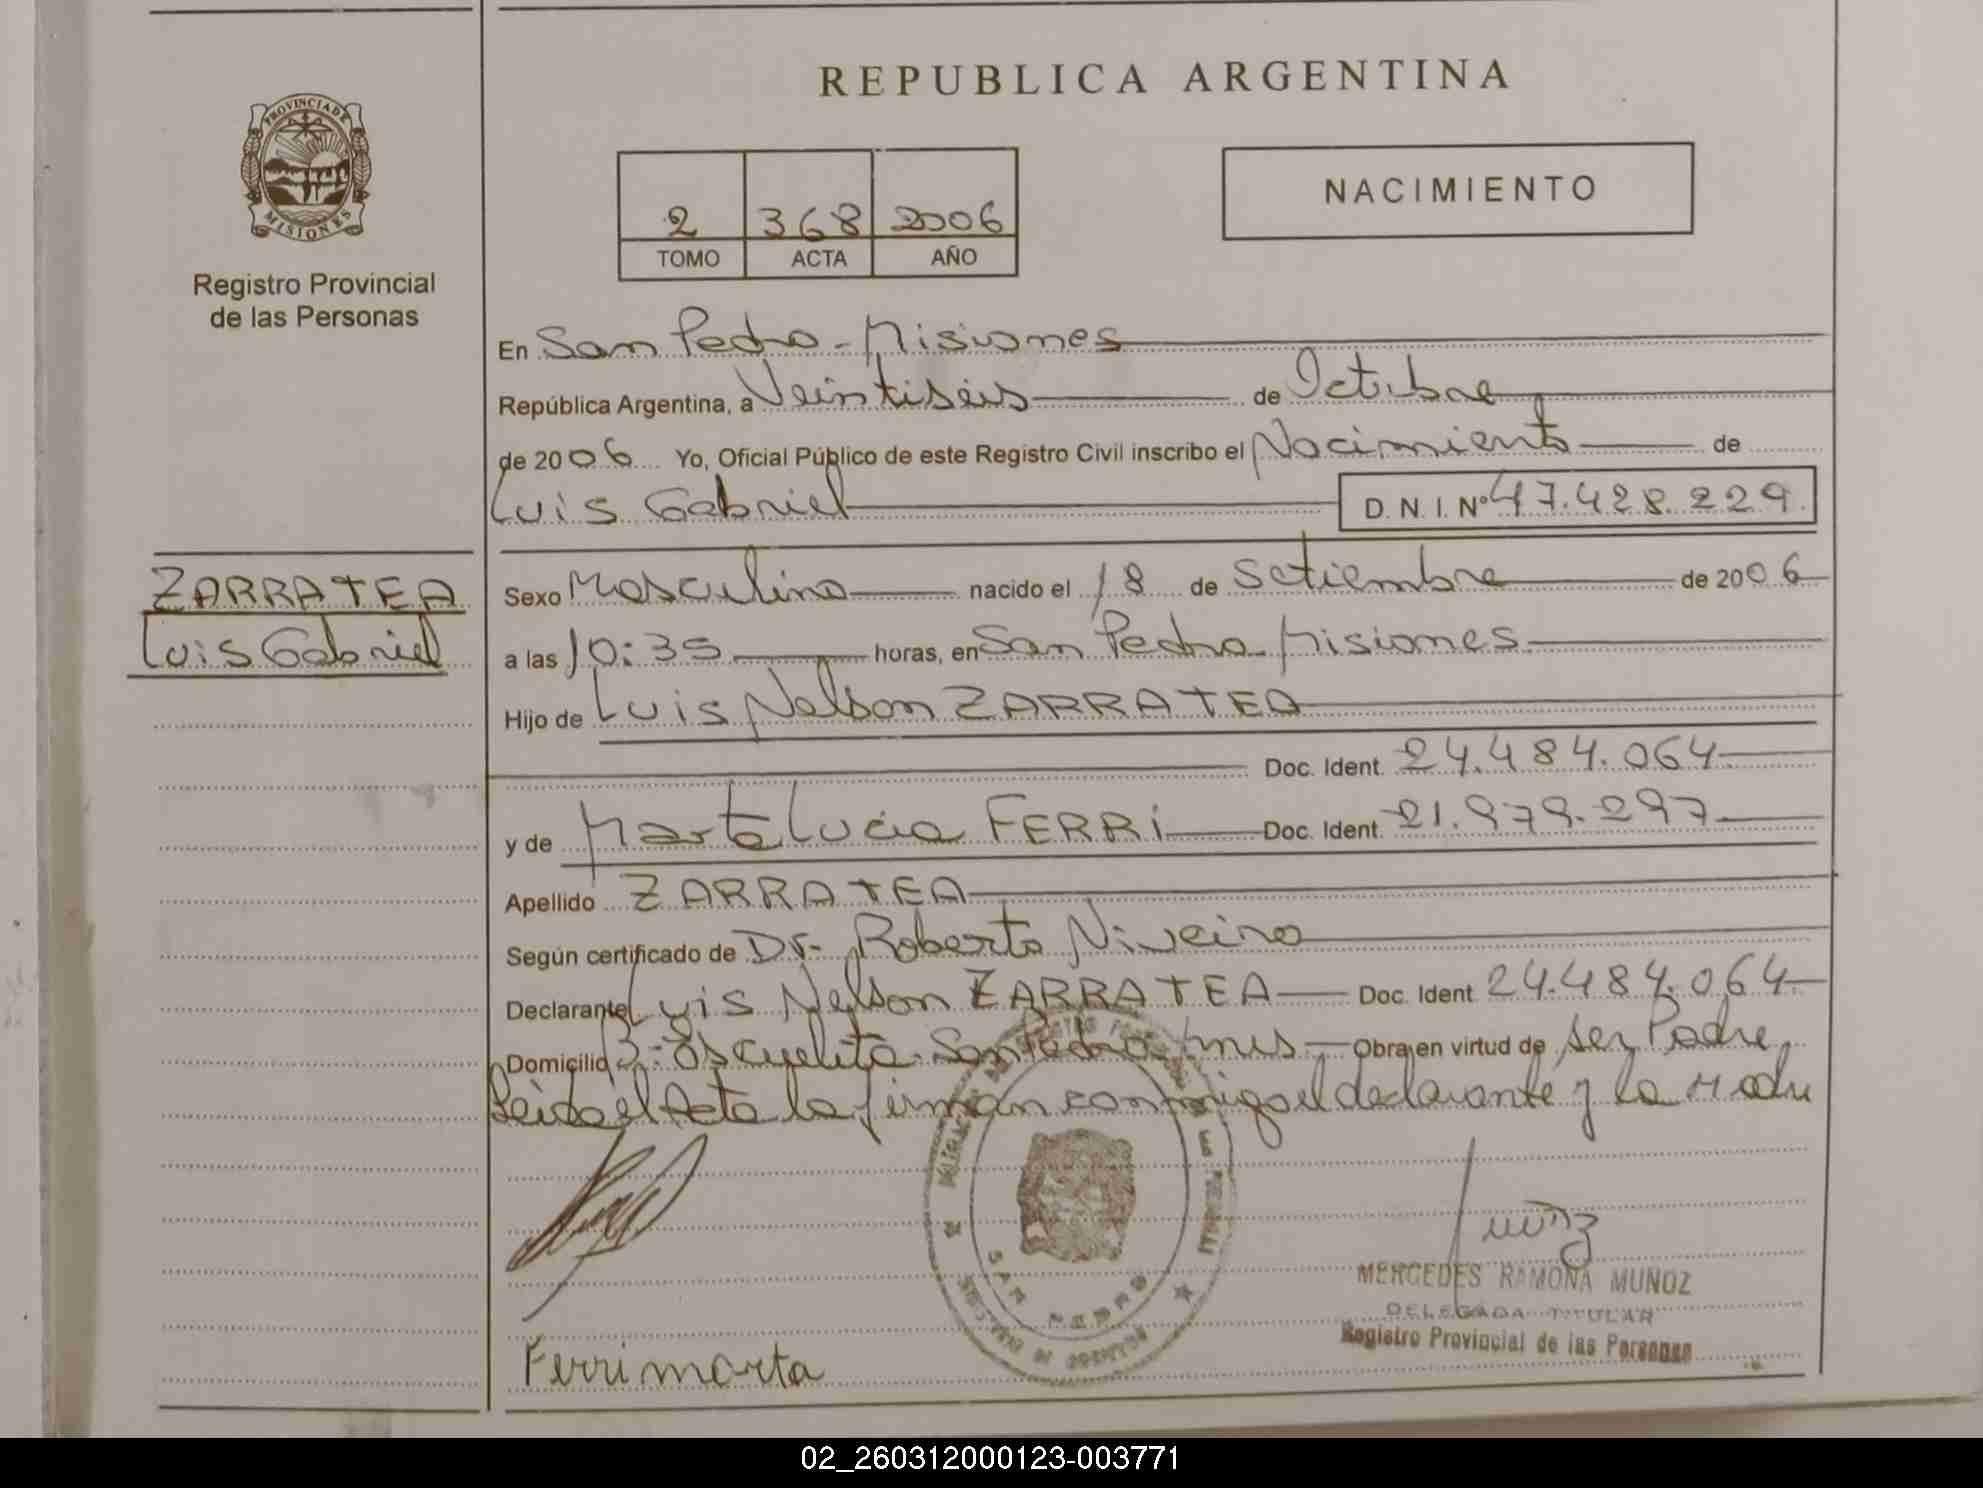 REPUBLICA ARGENTINA
PROVINCIA DE
MISIONES
Registro Provincial
de las Personas
2 368 2006
TOMO ACTA AÑO
NACIMIENTO
En San Pedro - Misiones
República Argentina, a Veintiséis de Octubre
de 2006 Yo, Oficial Público de este Registro Civil inscribo el Nacimiento de
Luis Gabriel D. N. I. Nº 47.428.229
ZARRATEA
Luis Gabriel
Sexo Masculino nacido el 18 de Setiembre de 2006
a las 10:35 horas, en San Pedro - Misiones
Hijo de Luis Nelson ZARRATEA
Doc. Ident. 24.484.064
y de Marta Lucia FERRI Doc. Ident. 21.979.297
Apellido ZARRATEA
Según certificado de Dr. Roberto Niveiro
Declarante Luis Nelson ZARRATEA Doc. Ident 24.484.064
Domicilio San Pedro Mnes Obra en virtud de ser Padre
Leida el Acta la firman conmigo el declarante y la Madre
SAN PEDRO
Muñoz
MERCEDES RAMONA MUÑOZ
DELEGADA TITULAR
Registro Provincial de las Personas
Ferri marta
02_260312000123-003771